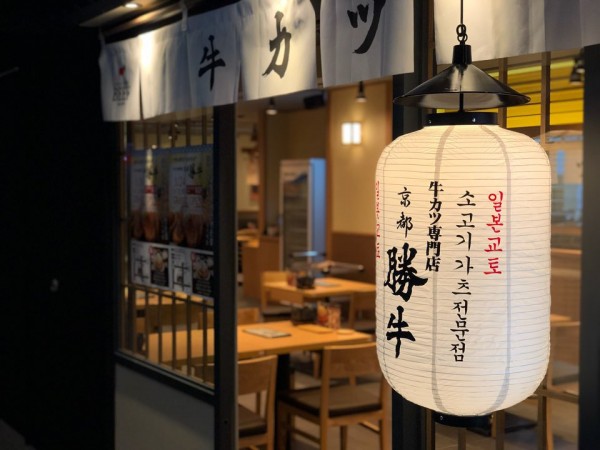 牛カツ
일본교토
소고기 가츠전문점
牛カツ専門店
京都
勝牛
일본교토